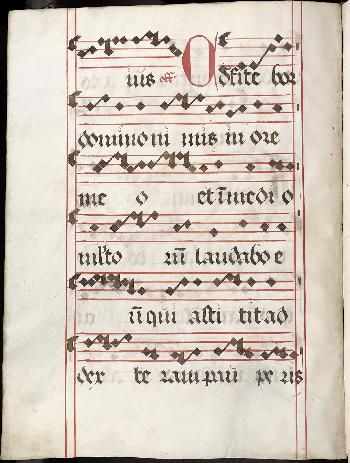 ius off Cõfite bor
domino ni mis in ore
me o et ĩ medi o
multo rũ laudabo e
ũ qui asti tit ad
dex te ram pau pe ris